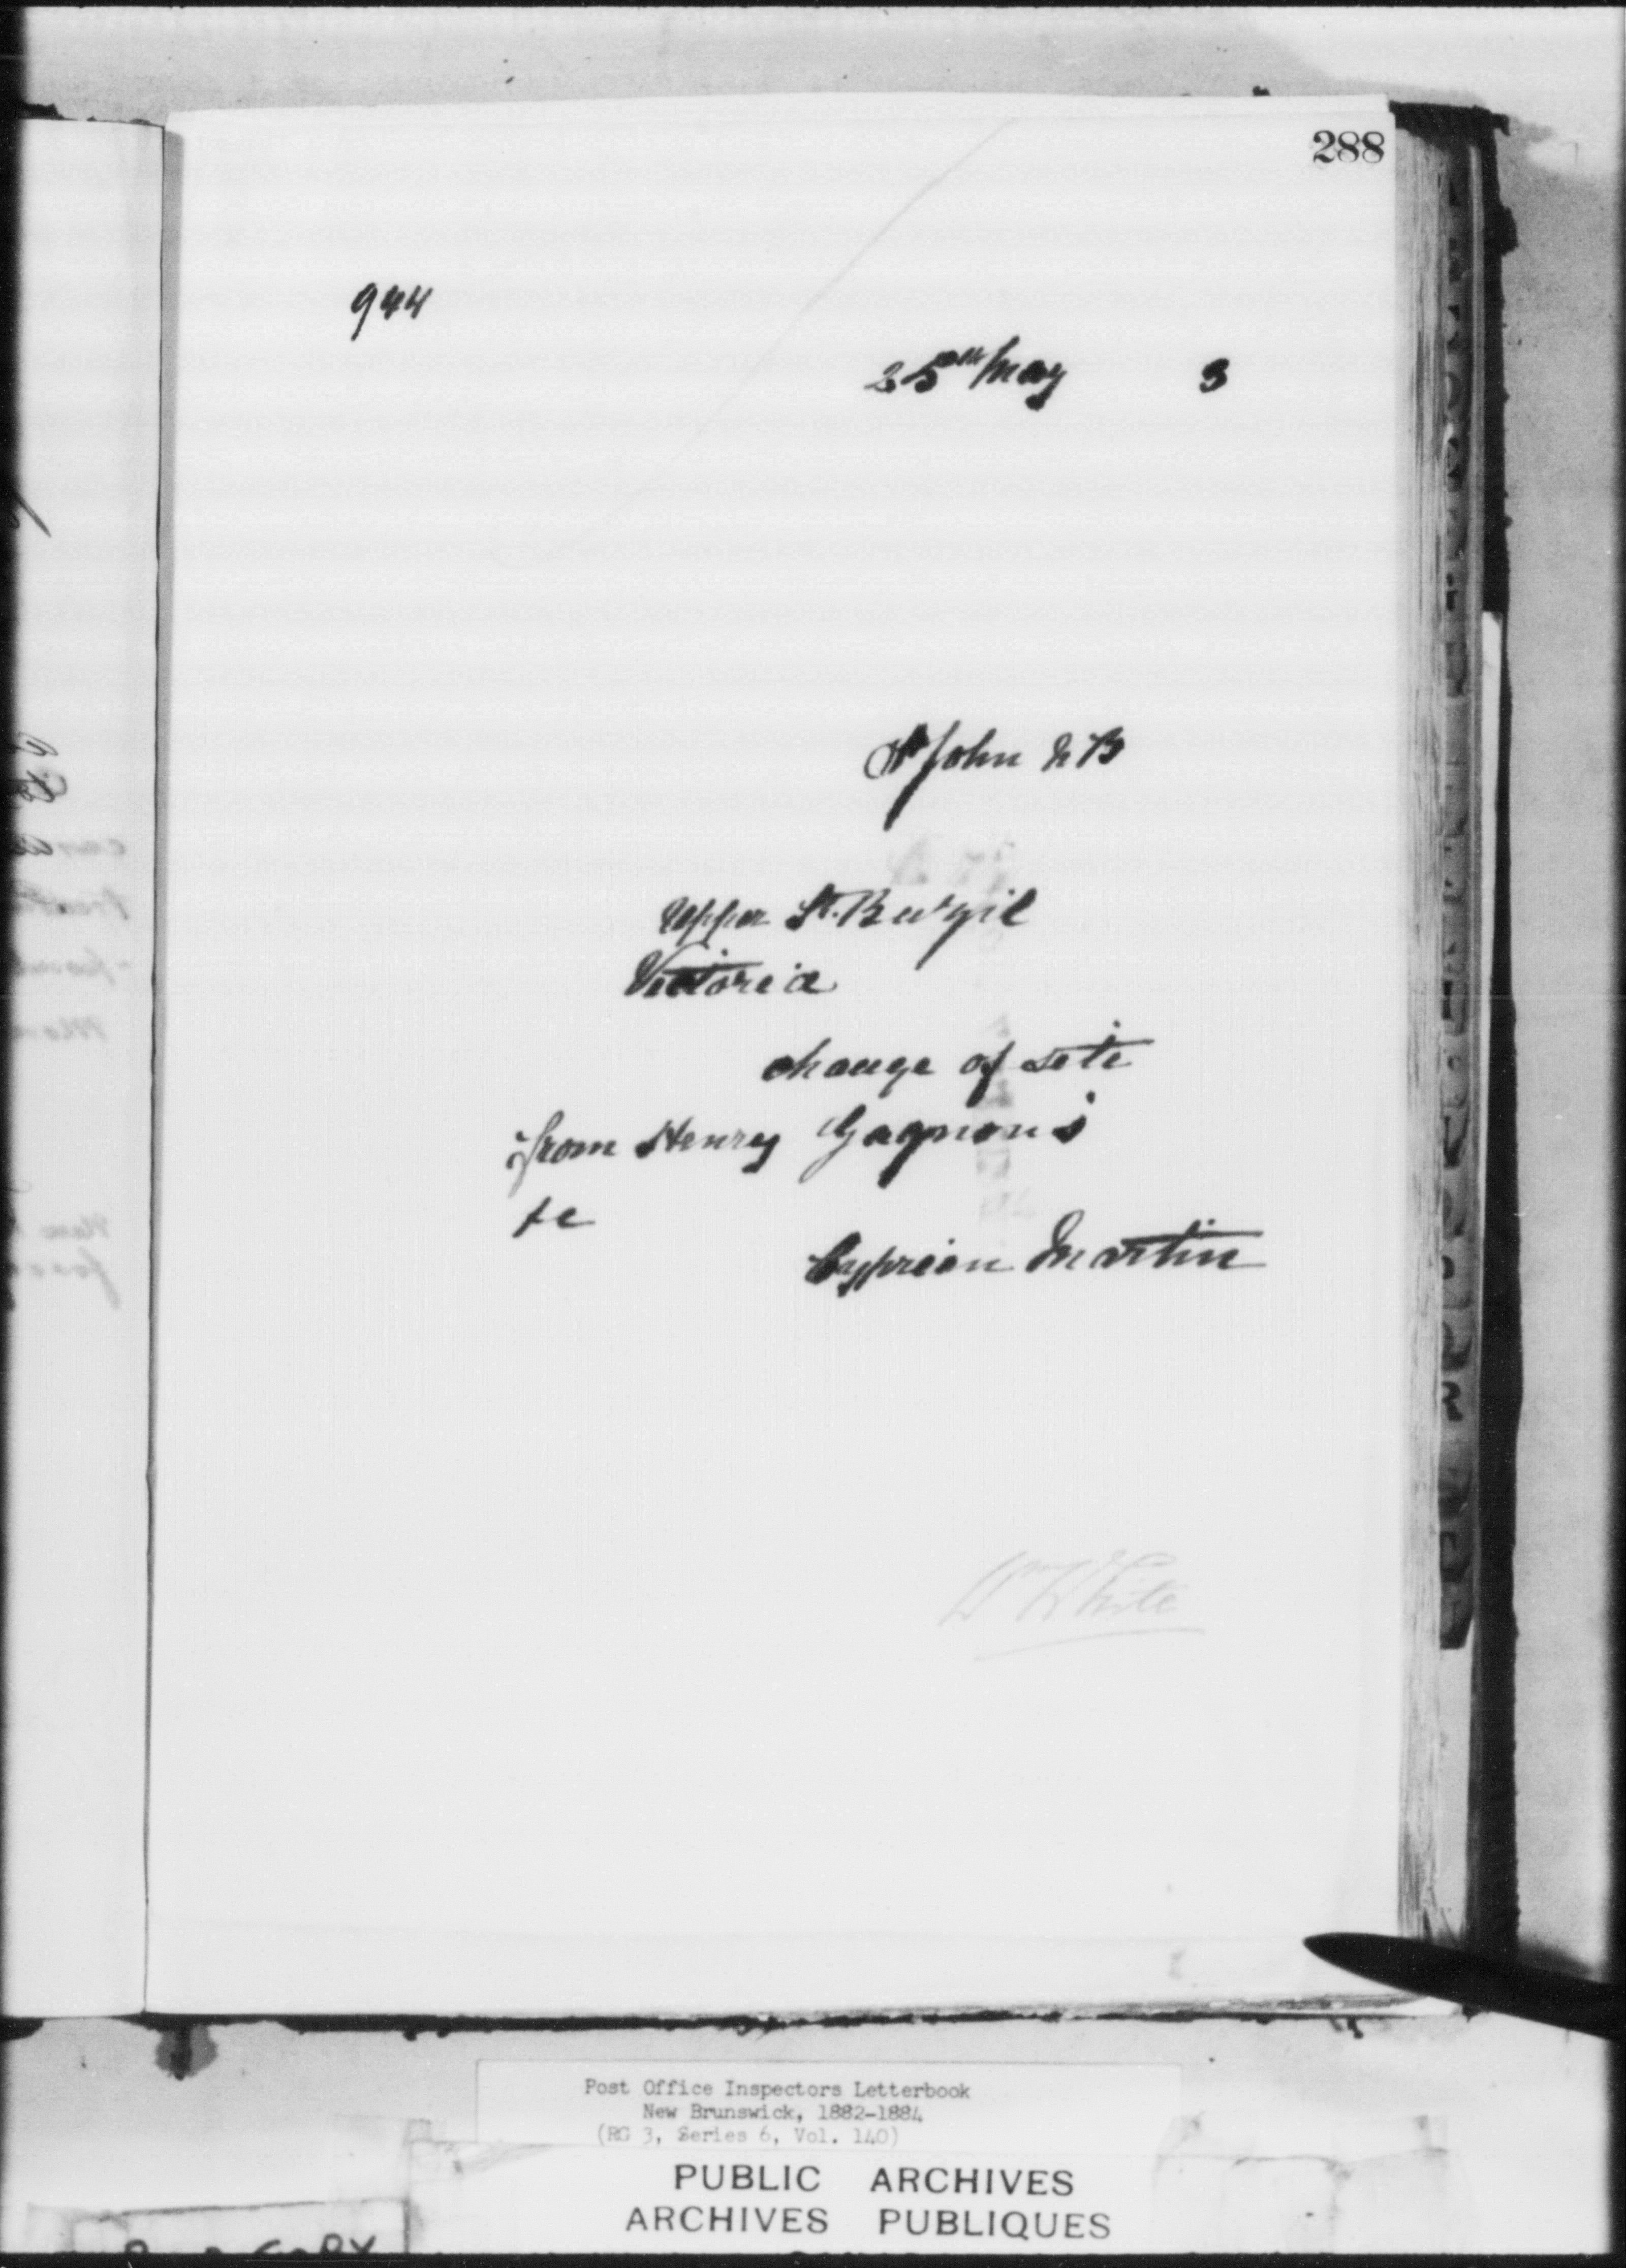 288
944
25th May 3
St John N B
Upper St. Basil
Victoria
change of site
from Henry Gagnon's
to
Cyprien Martin
Wm White
Post Office Inspectors Letterbook
New Brunswick, 1882-1884
(RG 3, Series 6, Vol. 140)
PUBLIC ARCHIVES
ARCHIVES PUBLIQUES